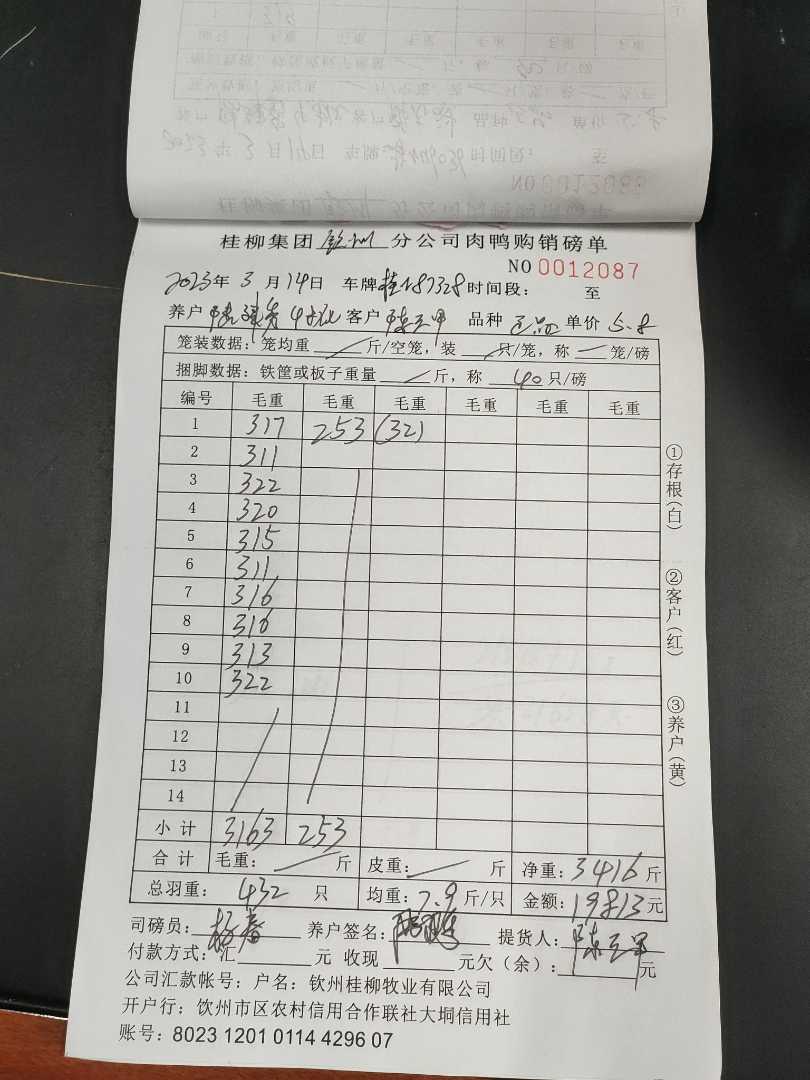 桂柳集团 钦州 分公司肉鸭购销磅单
NO 0012087
2023年 3 月 14日 车牌 桂 87328 时间段： 至
养户 客户 陈 甲 品种 正品 单价 5.8
笼装数据：笼均重 / 斤/空笼，装 / 只/笼，称 — 笼/磅
捆脚数据：铁筐或板子重量 / 斤，称 40 只/磅
编号 毛重 毛重 毛重 毛重 毛重 毛重
1 317 253 (32)
2 311
3 322
4 320
5 315
6 311
7 316
8 316
9 313
10 322
11
12
13
14
小 计 3163 253
合 计 毛重： / 斤 皮重： / 斤 净重：3416 斤
总羽重： 432 只 均重：7.9 斤/只 金额：19813 元
司磅员： 杨 养户签名： 提货人：陈 甲
付款方式：汇 元 收现 元欠（余）： 元
公司汇款帐号：户名：钦州桂柳牧业有限公司
开户行：饮州市区农村信用合作联社大垌信用社
账号：8023 1201 0114 4296 07
①存根（白）
②客户（红）
③养户（黄）